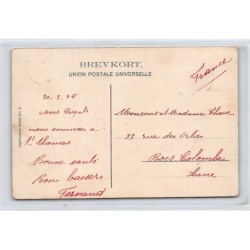 BREVKORT,
UNION POSTALE UNIVERSELLE
France
20. 3. 06
Mes Parents
nous sommes a
St Thomas
Bonne santé
Bons baisers
Fernand
Monsieur et Madame
rue des
Bois Colombes
Seine